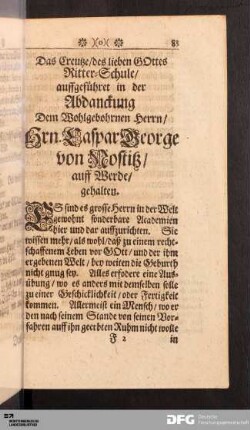 83
Das Creutze/des lieben GOttes
Ritter-Schule/
auffgeführet in der
Abdanckung
Dem Wohlgebohrnen Herrn/
Hrn. Caspar George
von Nostitz/
auff Werde/
gehalten.
ES sind es grosse Herrn in der Welt
gewohnt sonderbare Academien
hier und dar auffzurichten. Sie
wissen mehr/als wohl/daß zu einem recht-
schaffenem Leben vor GOtt/und der ihm
ergebenen Welt/ bey weiten die Geburth
nicht gnug sey. Alles erfodere eine Aus-
übung/ wo es anders mit demselben solle
zu einer Geschickligkeit/ oder Fertigkeit
kommen. Allermeist ein Mensch/ wo er
den nach seinem Stande von seinen Vor-
fahren auff ihn geerbten Ruhm nicht wolle
F 2
in
DFG Deutsche
Forschungsgemeinschaft